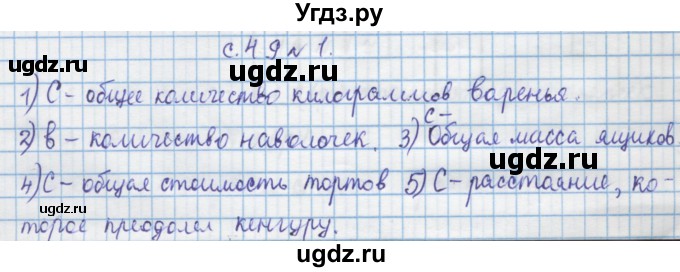 Угдз.ру
с. 49 № 1.
1) С – общее количество килограммов варенья.
2) в – количество наволочек. 3) С – Общая масса ящиков
4) С – общая стоимость тортов 5) С – расстояние, ко-
торое преодолел кенгуру.
ugdz.ru
ugdz.ru
ugdz.ru
ugdz.ru
ugdz.ru
ugdz.ru
ugdz.ru